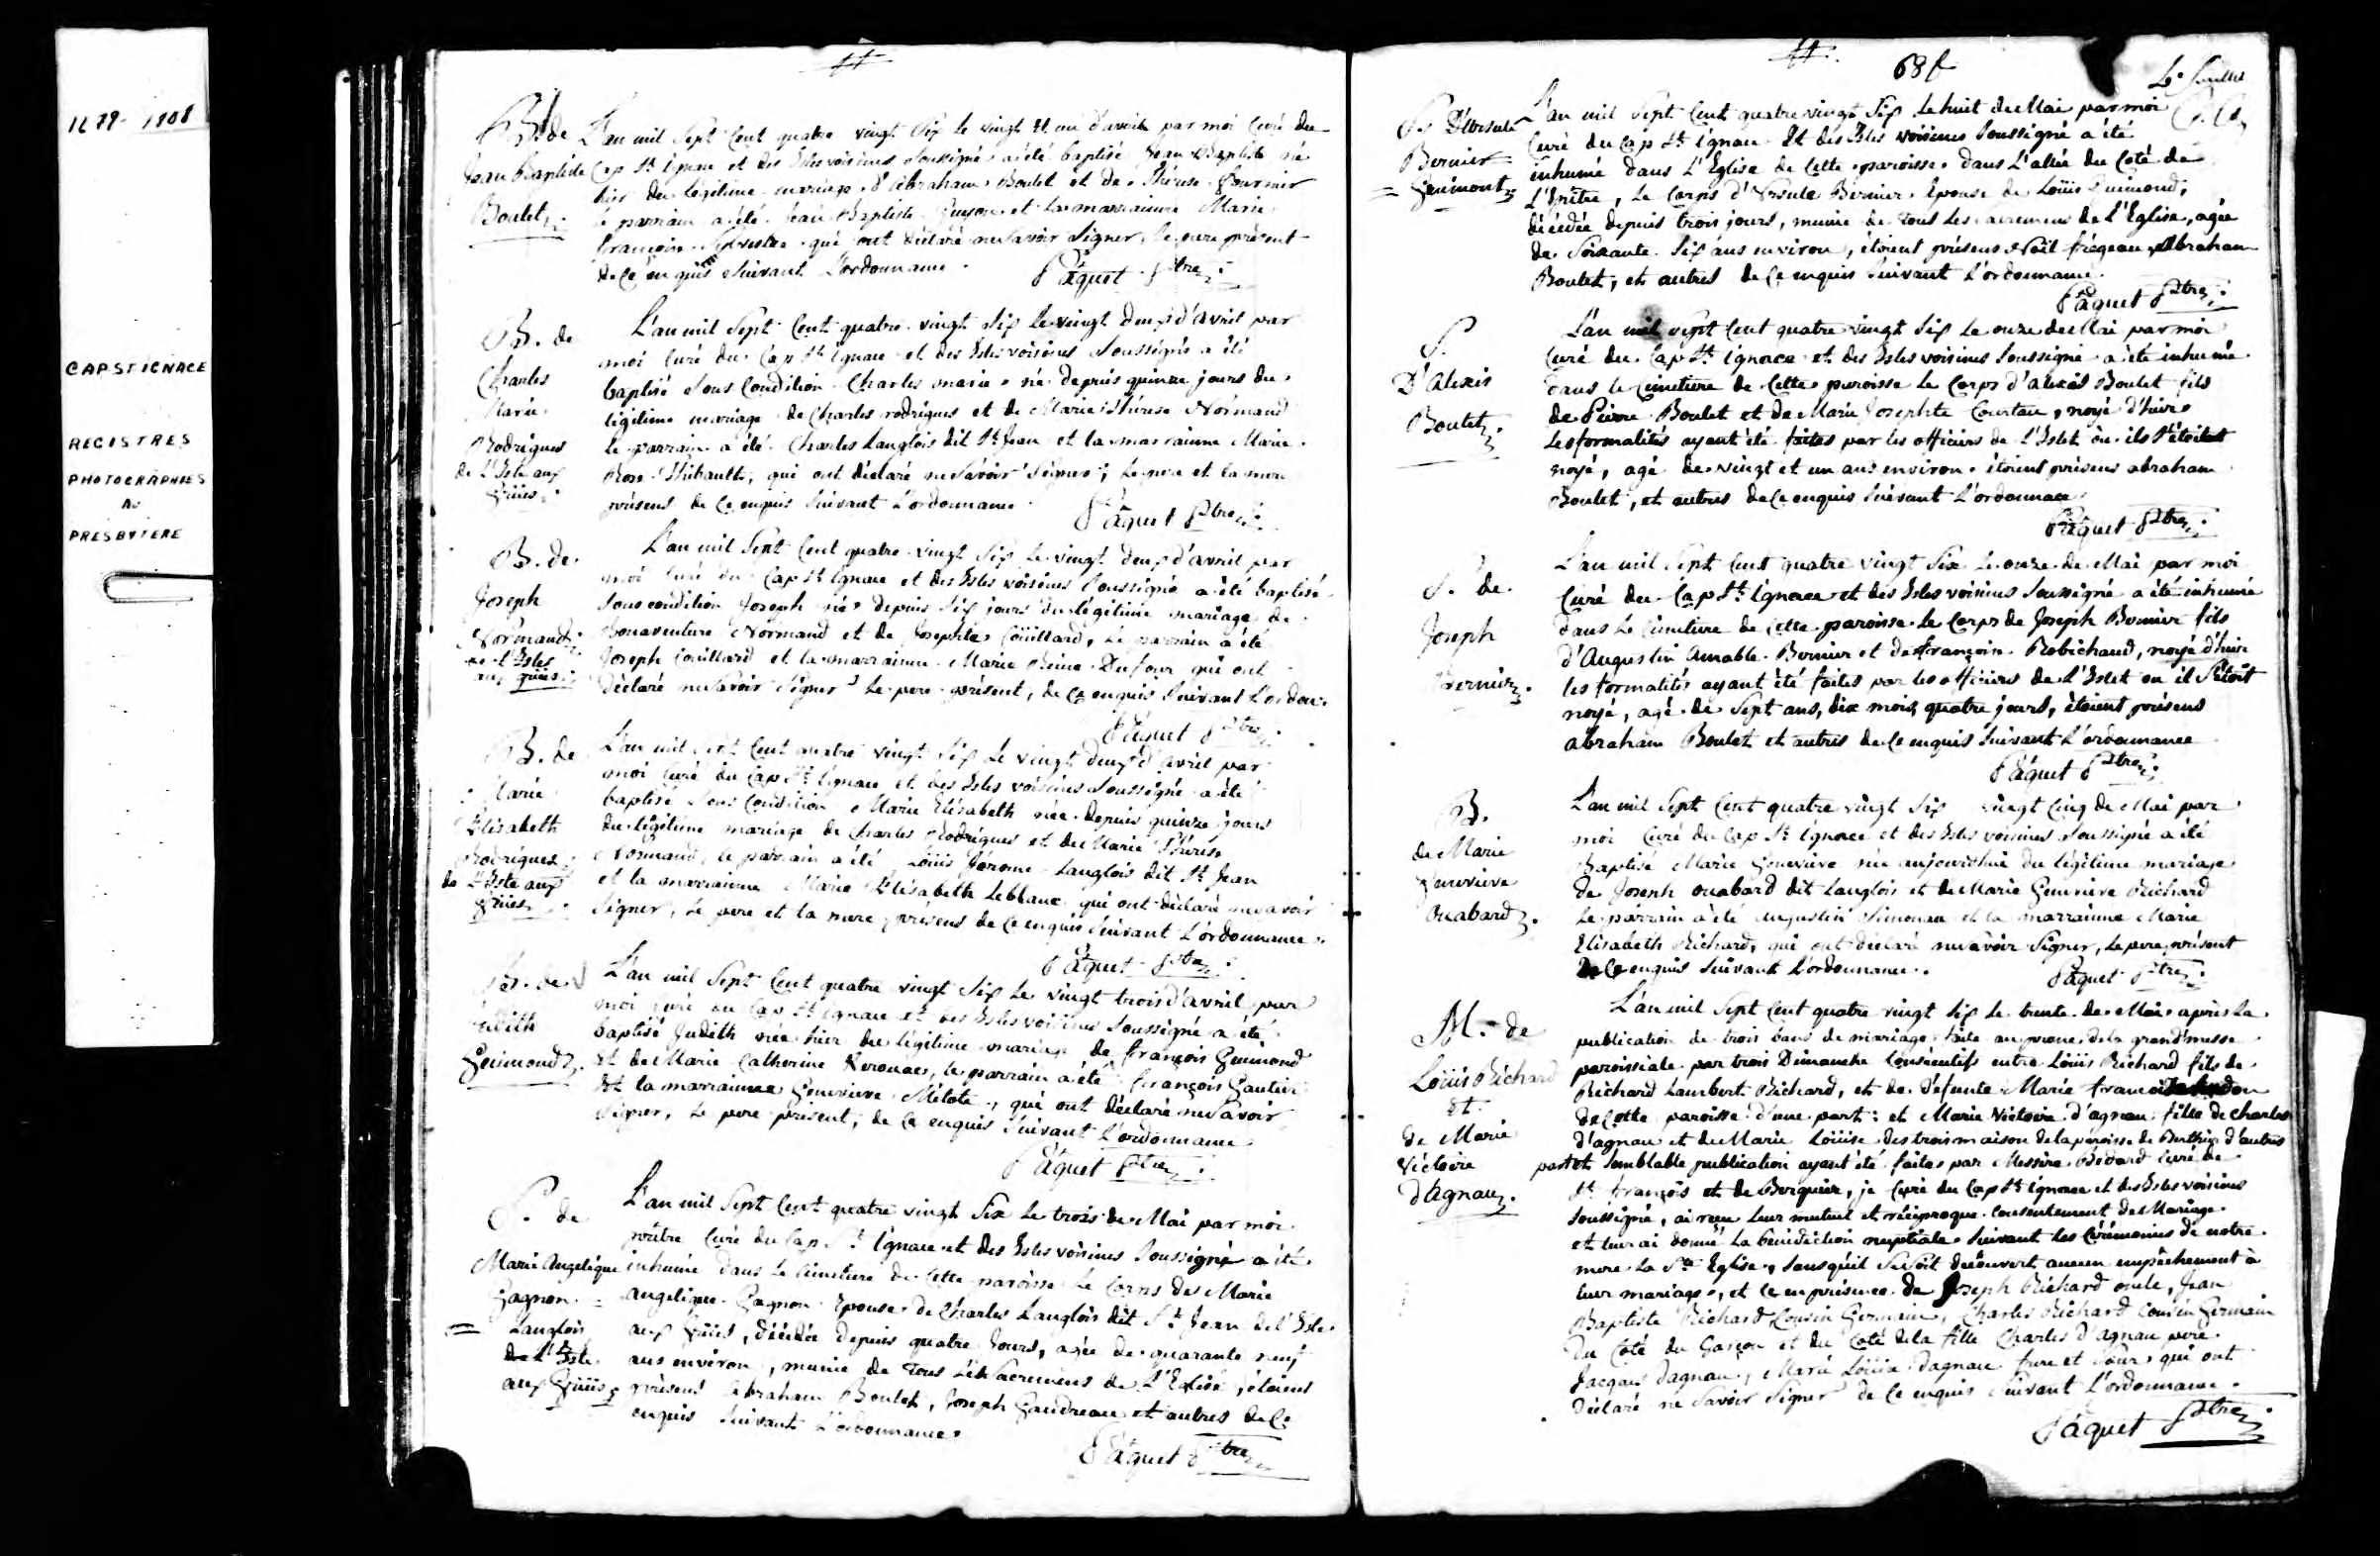 1679-1908
CAP ST IGNACE
REGISTRES
PHOTOGRAPHIES
AU
PRESBYTERE
B. de
Jean Baptiste
Boulet
L'an mil Sept Cent quatre vingt Six le vingt et un d'avril par moi Curé du
Cap St Ignace et des Isles voisines Soussigné a été baptisé Jean Baptiste né
hier du légitime mariage d'Abraham Boulet et de Thérese Fournier
le parrain a été Jean Baptiste Guyon et la marrainne Marie
Françoise Silvestre qui ont déclaré ne Savoir Signer, le pere présent
de Ce enquis Suivant L'ordonnance.
Pâquet Ptre
B. de
Charles
Marie
Rodrigues
de L'Isle aux
Grües
L'an mil Sept Cent quatre vingt Six le vingt deux d'avril par
moi Curé du Cap St Ignace et des Isles voisines Soussigné a été
baptisé Sous Condition Charles marie né depuis quinze jours du
légitime mariage de Charles rodrigues et de Marie Thérese Normand
le parrain a été Charles Langlois dit St Jean et la marrainne Marie
Rose Thibault, qui ont déclaré ne Savoir Signer; le pere et la mere
présens de Ce enquis Suivant L'ordonnance.
Pâquet Ptre
B. de
Joseph
Normand
de L'Isles
aux grües
L'an mil Sept Cent quatre vingt Six le vingt deux d'avril par
moi Curé du Cap St Ignace et des Isles voisines Soussigné a été baptisé
Sous condition Joseph né depuis Six jours du légitime mariage de
Bonaventure Normand et de Josephte Coüillard, le parrain a été
Joseph Couillard et la marrainne Marie Reine Dufour qui ont
déclaré ne Savoir Signer le pere présent, de Ce enquis Suivant L'ordon.
Pâquet Ptre
B. de
Marie
Elisabeth
Rodrigues
de L'Isle aux
Grües
L'an mil Sept Cent quatre vingt Six le vingt deux d'avril par
moi Curé du Cap St Ignace et des Isles voisines Soussigné a été
baptisé Sous Condition Marie Elisabeth née depuis quinze jours
du légitime mariage de Charles Rodrigues et de Marie Thérese
Normand, le parrain a été Loüis Jérome Langlois dit St Jean
et la marrainne Marie Elisabeth Leblanc qui ont déclaré ne Savoir
Signer, le pere et la mere présens de Ce enquis Suivant L'ordonnance.
Pâquet Ptre
B. de
Judith
Guimond
L'an mil Sept Cent quatre vingt Six le vingt trois d'avril par
moi Curé du Cap St Ignace et des Isles voisines Soussigné a été
baptisé Judith née hier du légitime mariage de François Guimond
et de Marie Catherine Kerouac, le parrain a été François Gautier
et la marrainne Genevieve Mélote, qui ont déclaré ne Savoir
Signer, le pere présent, de Ce enquis Suivant L'ordonnance
Pâquet Ptre
S. de
Marie Angelique
Gagnon
Langlois
de L'Isle
aux Grües
L'an mil Sept Cent quatre vingt Six le trois de Mai par moi
prêtre Curé du Cap St Ignace et des Isles voisines Soussigné a été
inhumé dans le Cimetiere de Cette paroisse le Corps de Marie
angelique Gagnon Epouse de Charles Langlois dit St Jean de L'Isle
aux Grües, décédée depuis quatre Jours, agée de quarante neuf
ans environ, munie de Tous les Sacremens de L'Eglise, étoient
présens Abraham Boulet, Joseph Gaudreau et autres de Ce
enquis Suivant L'ordonnance
Pâquet Ptre
68f
S. D'Ursule
Bernier
Guimont
L'an mil Sept Cent quatre vingt Six le huit de Mai par moi
Curé du Cap St Ignace et des Isles voisines Soussigné a été
inhumé dans L'Eglise de Cette paroisse dans L'allée du Coté de
L'Epître, Le Corps d'Ursule Bernier Epouse de Loüis Guimond,
décédée depuis trois jours, munie de tous les Sacremens de L'Eglise, agée
de Soixante Six ans environ, étoient présens Noël frégeau, Abraham
Boulet, et autres de Ce enquis Suivant L'ordonnance.
Pâquet Ptre
S.
D'Alexis
Boulet
L'an mil Sept Cent quatre vingt Six le onze de Mai par moi
Curé du Cap St Ignace et des Isles voisines Soussigné a été inhumé
dans le Cimetiere de Cette paroisse le Corps d'alexis Boulet fils
de Pierre Boulet et de Marie Josephte Couture, noyé d'hier
les formalités ayant été faites par les officiers de L'Islet où il S'étoit
noyé, agé de vingt et un ans environ étoient présens abraham
Boulet, et autres de Ce enquis Suivant L'ordonnance
Pâquet Ptre
S. de
Joseph
Bernier
L'an mil Sept Cent quatre vingt Six le onze de Mai par moi
Curé du Cap St Ignace et des Isles voisines Soussigné a été inhumé
dans le Cimetiere de Cette paroisse le Corps de Joseph Bernier fils
d'Augustin Amable Bernier et de françoise Robichaud, noyé d'hier
les formalités ayant été faites par les officiers de L'Islet où il S'étoit
noyé, agé de Sept ans, dix mois, quatre jours, étoient présens
abraham Boulet et autres de Ce enquis Suivant L'ordonnance
Pâquet Ptre
B.
de Marie
Genevieve
Ouabard
L'an mil Sept Cent quatre vingt Six vingt Cinq de Mai par
moi Curé du Cap St Ignace et des Isles voisines Soussigné a été
Baptisé Marie Genevieve née aujourdhui du légitime mariage
de Joseph ouabard dit Langlois et de Marie Genevieve Richard
Le parrain a été augustin Simoneau et la marrainne Marie
Elisabeth Richard, qui ont déclaré ne Savoir Signer, le pere présent
de Ce enquis Suivant L'ordonnance.
Pâquet Ptre
M. de
Loüis Richard
et
de Marie
Victoire
d'Agnau
L'an mil Sept Cent quatre vingt Six le trente de Mai après la
publication de trois bans de mariage faite au prone de la grand messe
paroissiale par trois Dimanche Consécutifs entre Loüis Richard fils de
Richard Lambert Richard, et de Défunte Marie
de Cette paroisse d'une part: et Marie Victoire d'agnau fille de Charles
d'agnau et de Marie Loüise des trois maison de la paroisse de Berthier d'autres
part et Semblable publication ayant été faites par Messire Bédard Curé de
St François et de Berquier, je Curé du Cap St Ignace et des Isles voisines
Soussigné, ai reçu leur mutuel et réciproque Consentement de Mariage
et leur ai donné La bénédiction nuptiale Suivant les Cérémonies de notre
mere La Ste Eglise, Sans qu'il Se Soit découvert aucun empêchement à
leur mariage, et Ce en présence de Joseph Richard oncle, Jean
Baptiste Richard Cousin Germain, Charles Richard Cousin Germain
du Coté du Garçon et du Coté de la fille Charles d'agnau pere
Jacques Dagnau, Marie Loüise Dagnau frere et Sœur qui ont
déclaré ne Savoir Signer de Ce enquis Suivant L'ordonnance.
Pâquet Ptre